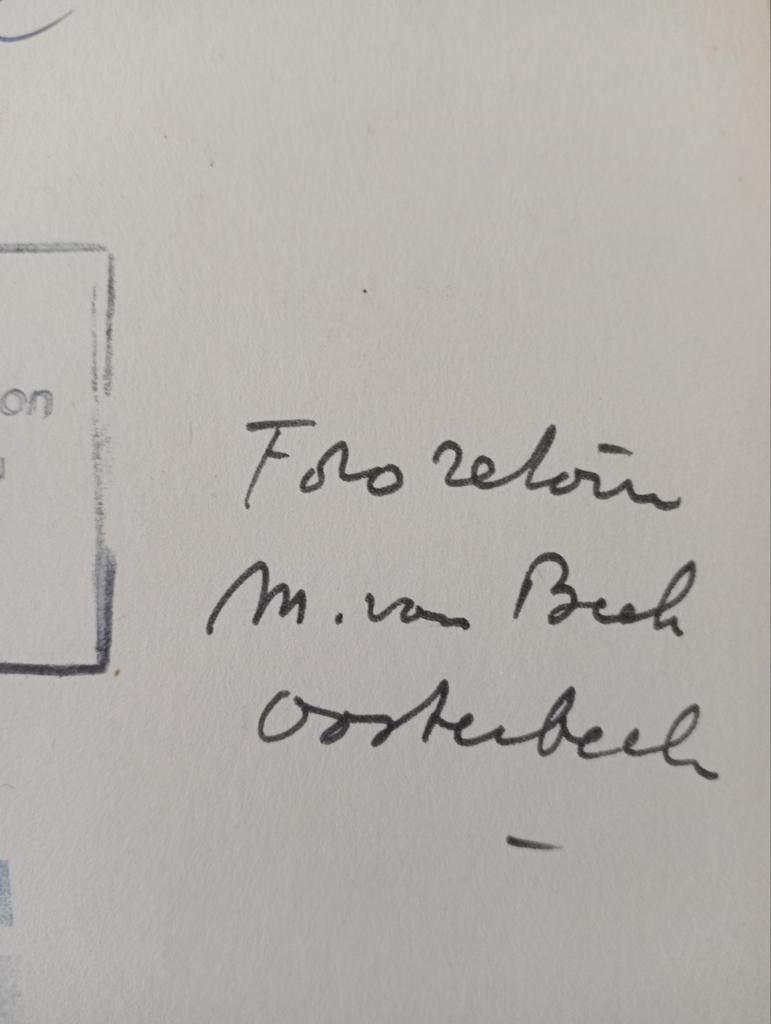 on
Foto retour
M. van Beek
Oosterbeek